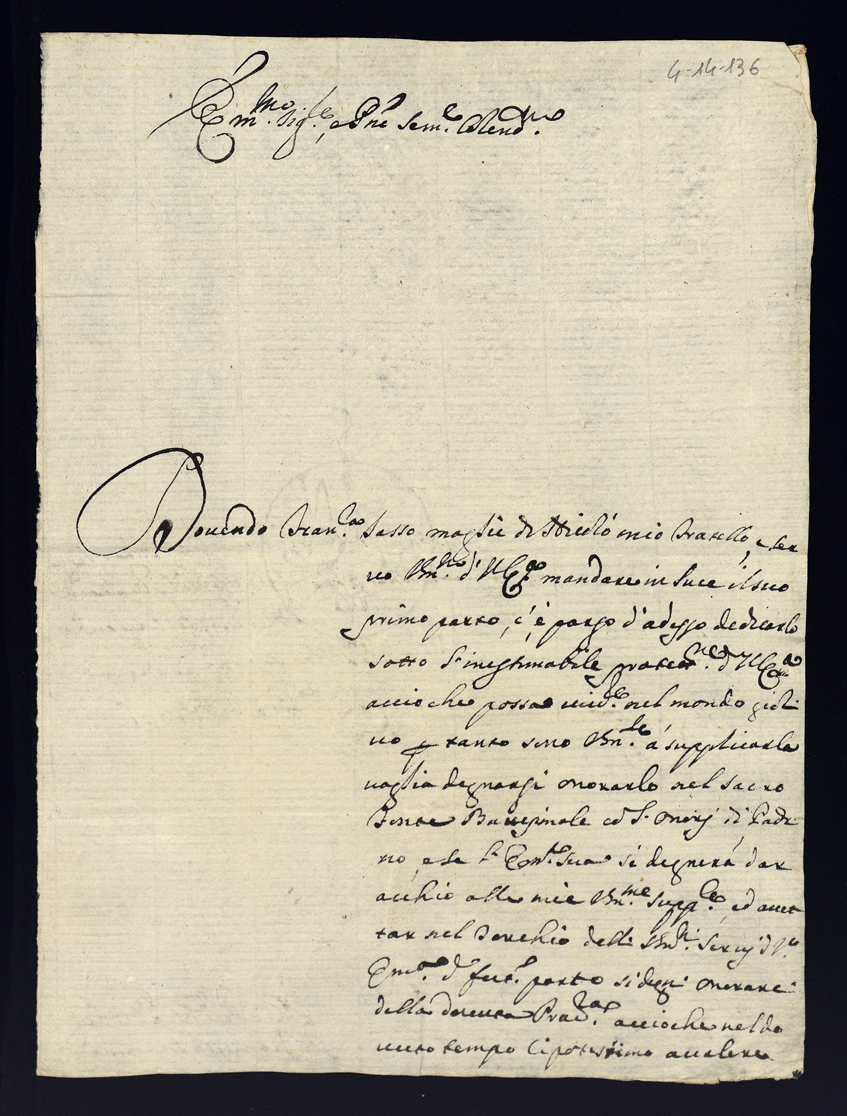 4-14-136
Em.mo Sig.re, e Pne Sem.e Colend.mo
Dovendo Fran.ca Sasso moglie di Nicolò mio Fratello, e ser
vo Hm.o d'V.E. mandare in luce il suo
primo parto, c'è parso d'adesso dedicarlo
sotto l'inestimabile protet.ne d'V.E.
accioche possa nel mondo
vo p tanto sono Hm.te à supplicarla
voglia degnarsi onorarlo nel sacro
Fonte Battesimale ed l'onorj di Padri
no, e se l'Em.a Sua si degnerà dar
orchio alle mie Hm.me supp.e, ed accet
tar nel delli Hm.i Servj d V.a
Em.a d parto si degni onorare
della dovuta accioche nel do
vuto tempo li potessimo avalere